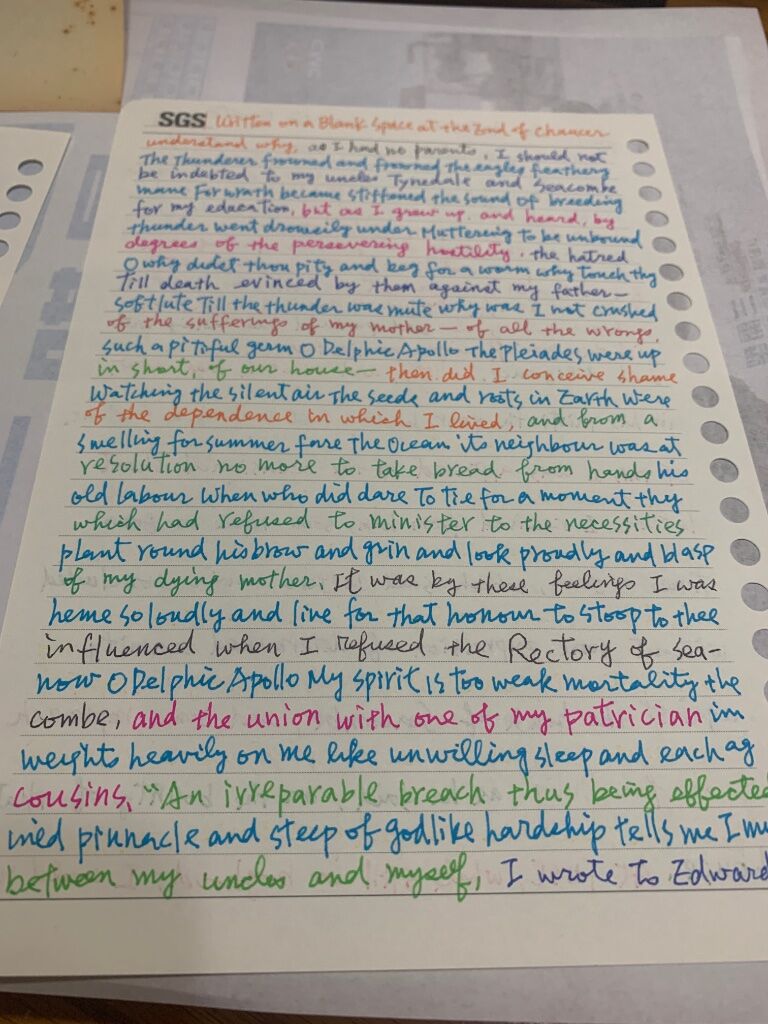 SGS Written on a Blank Space at the End of Chaucer
understand why, as I had no parents, I should not
The Thunderer frowned and frowned The eagles feathery
be indebted to my uncles Tynedale and Seacombe
mane For wrath became stiffened the sound of breeding
for my education, but as I grew up, and heard, by
thunder went drowsily under Muttering to be unbound
degrees of the persevering hostility, the hatred
O why didst thou pity and beg for a worm why touch thy
Till death evinced by them against my father—
soft lute Till the thunder was mute why was I not crushed
of the sufferings of my mother— of all the wrongs,
such a pitiful germ O Delphic Apollo The Pleiades were up
in short, of our house— then did I conceive shame
Watching the silent air The seeds and roots in Earth were
of the dependence in which I lived, and from a
smelling for summer fare The Ocean its neighbour was at
resolution no more to take bread from hands his
old labour When who did dare To tie for a moment thy
which had refused to minister to the necessities
plant round his brow and grin and look proudly and blasp
of my dying mother. It was by these feelings I was
heme so loudly and live for that honour to stoop to thee
influenced when I refused the Rectory of Sea-
now O Delphic Apollo My spirit is too weak mortality the
combe, and the union with one of my patrician im
weights heavily on me like unwilling sleep and each ag
cousins. "An irreparable breach thus being effected
ined pinnacle and steep of godlike hardship tells me I mu
between my uncles and myself, I wrote to Edward